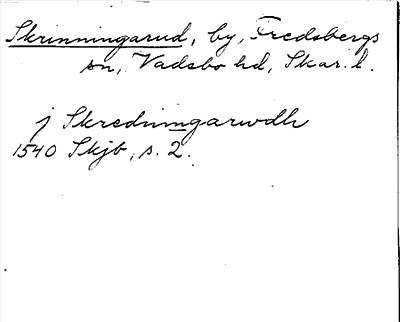 Skrinningarud, by, Fredsbergs
sn, Vadsbo hd, Skar. l.
j Skredningarwdh
1540 Skjb, s. 2.